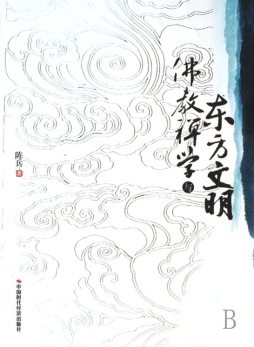 佛教禅学与
东方文明
陈兵 著
中国时代经济出版社
B